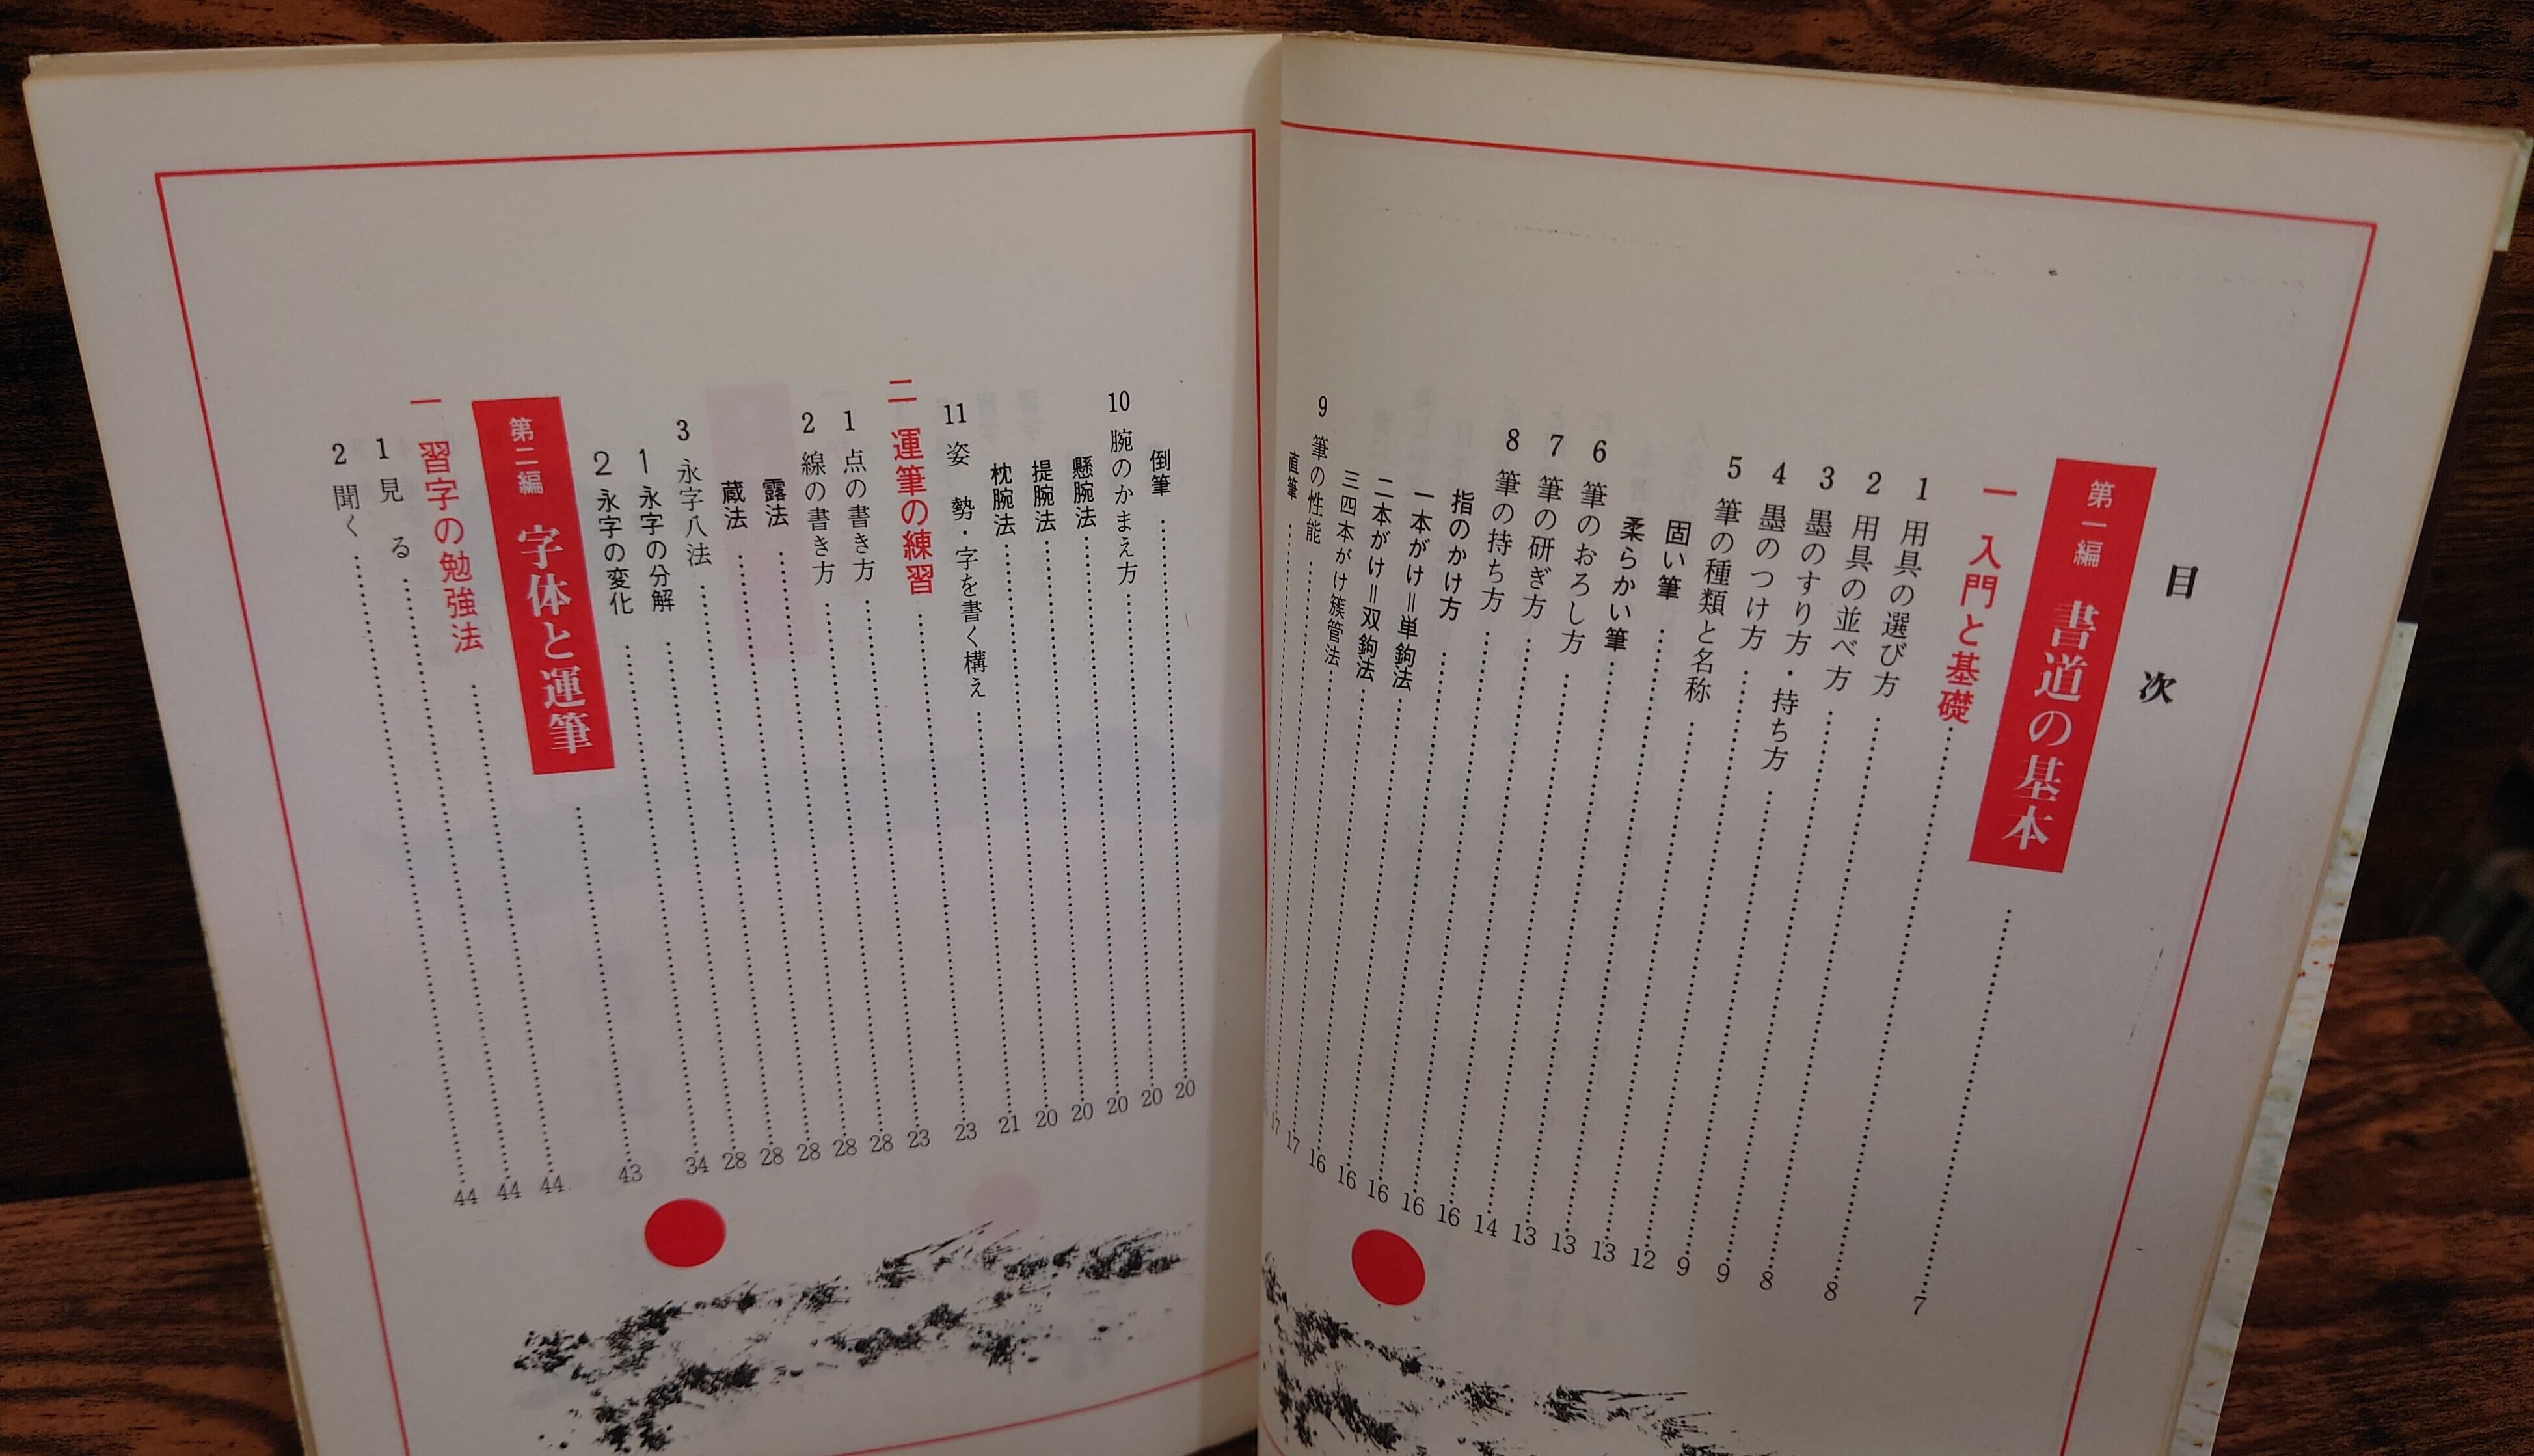 目次
第一編 書道の基本……7
一 入門と基礎……8
1 用具の選び方……8
2 用具の並べ方……9
3 墨のすり方・持ち方……9
4 墨のつけ方……12
5 筆の種類と名称……13
固い筆……13
柔らかい筆……13
6 筆のおろし方……14
7 筆の研ぎ方……16
8 筆の持ち方……16
指のかけ方……16
一本がけ＝単鉤法……16
二本がけ＝双鉤法……16
三四本がけ簇管法……17
9 筆の性能……17
直筆……
倒筆……20
10 腕のかまえ方……20
懸腕法……20
提腕法……20
枕腕法……20
11 姿 勢・字を書く構え……21
二 運筆の練習……23
1 点の書き方……23
2 線の書き方……28
露法……28
蔵法……28
3 永字八法……28
1 永字の分解……28
2 永字の変化……34
第二編 字体と運筆……43
一 習字の勉強法……44
1 見 る……44
2 聞く……44